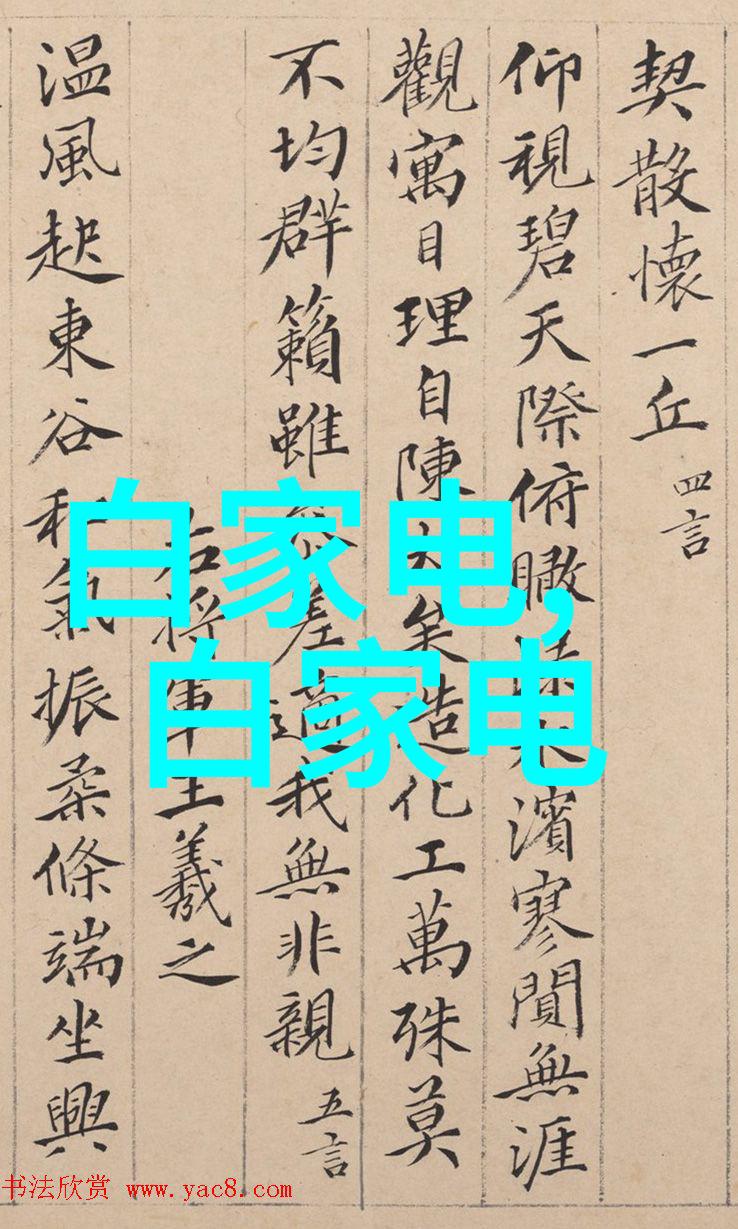 契散懷一丘 四言
仰視碧天際俯瞰淥水濱寥闃無涯
觀寓目理自陳大矣造化工萬殊莫
不均群籟雖參差適我無非親 五言
右將軍王羲之
温風起東谷和氣振柔條端坐興
白家电,
白家电
书法欣赏 www.yac8.com